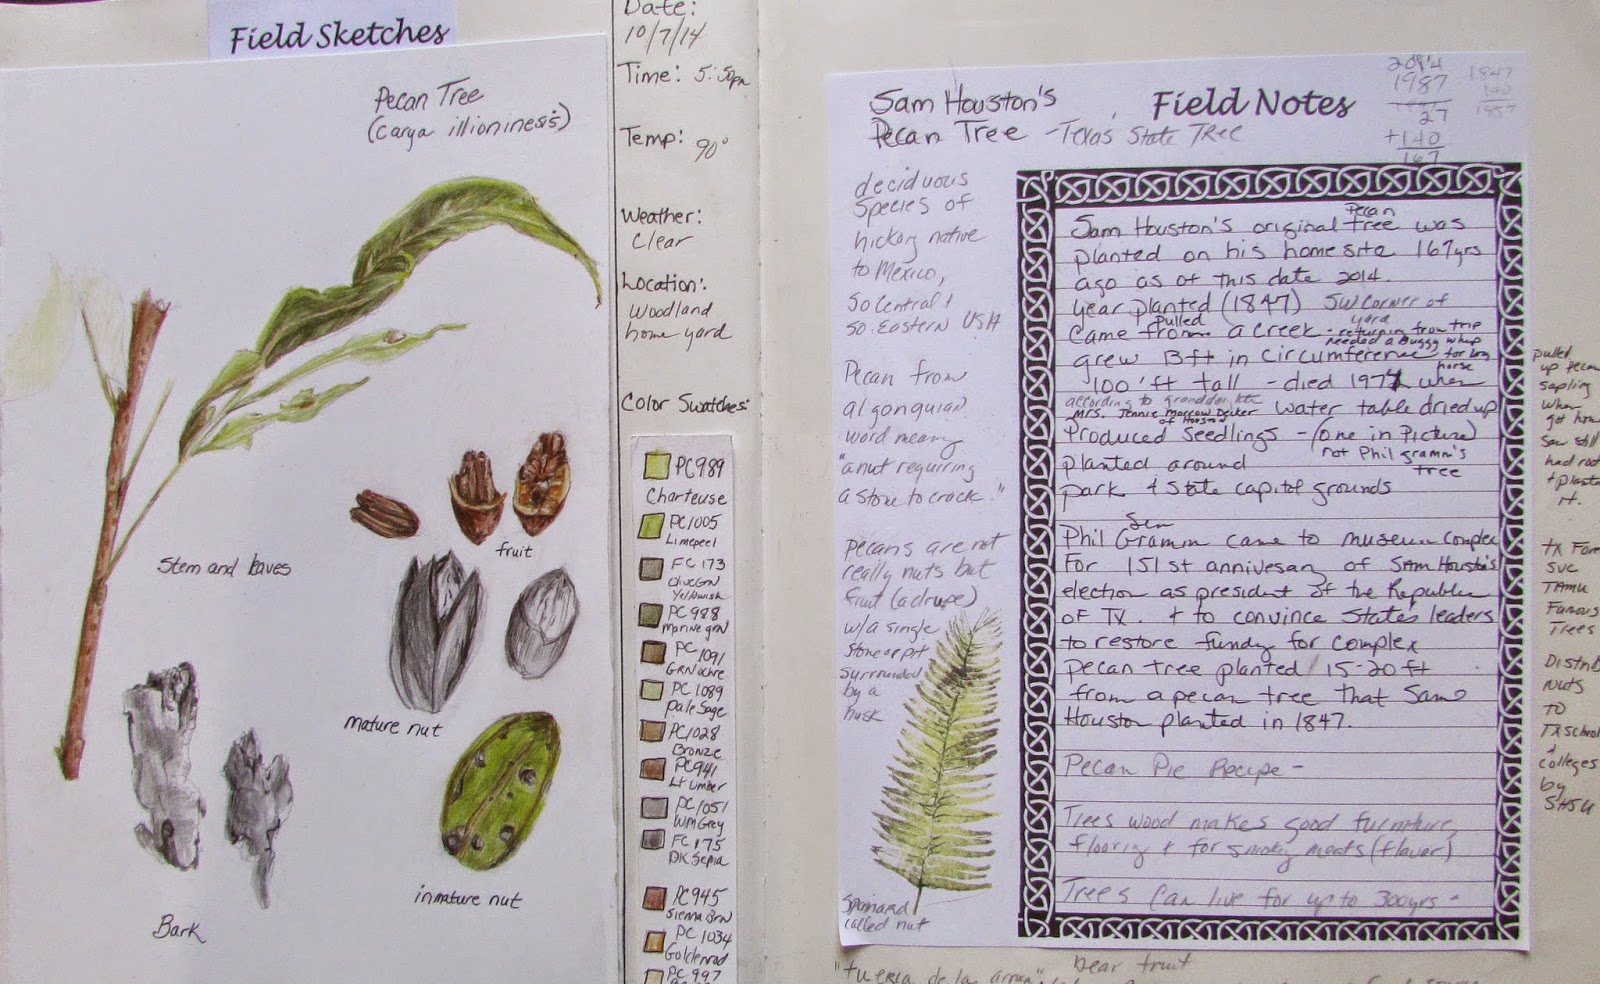 Field Sketches
Pecan Tree
(Carya illioninesis)
Stem and leaves
fruit
mature nut
inmature nut
Bark
Date:
10/7/14
Time: 5:50pm
Temp: 90°
Weather:
Clear
Location:
Woodland
home yard
Color Swatches:
PC989
Charteuse
PC1005
Limepeel
FC173
OlivGrn
Yellowish
PC988
Marine grn
PC1091
GRN ochre
PC1089
pale Sage
PC1028
Bronze
PC941
Lt umber
PC1051
WmGrey
FC175
DK Sepia
PC945
Sienna Brn
PC1034
Goldenrod
PC997
Sam Houston's
Pecan Tree - Texas State TREE
Field Notes
2014
1987
27
+140
167
1847
140
deciduous
Species of
hickory native
to Mexico,
So Central &
So. Eastern USA
Pecan from
algonquian
word meaning
"a nut requiring
a stone to crack."
Pecans are not
really nuts but
fruit (a drupe)
w/a single
Stone or pit
surrounded
by a
husk
Spaniard
called nut
Sam Houston's original Pecan Tree was
planted on his homesite 167yrs
ago as of this date 2014.
year planted (1847) SW Corner of
yard
Came Pulled from a creek - returning from trip
needed a Buggy whip
grew 13ft in Circumference for
horse
100'ft tall - died 197 when
according to
Mrs. Jennie Morrow Decker
of Houston
Water table dried up
Produced Seedlings - (one in Picture)
not Phil gramm's
tree
planted around
park & State capitol grounds
Sen
Phil Gramm came to museum complex
For 151st annivesary of SAM Houston's
election as president of the Republic
of TX. & to convince States leaders
to restore funding for complex
pecan tree planted 15-20ft
from a pecan tree that Sam
Houston planted in 1847.
Pecan Pie Recipe -
Trees wood makes good furniture,
flooring & for smoking meats (flavor)
Trees can live for up to 300yrs -
pulled
up pecan
sapling
when
got home
saw still
had root
+ plant
it.
TX Fore
Svc
TAMU
Famous
Trees
Distrib
nuts
TO
TX School
&
colleges
by
SHSU
bear fruit
de la